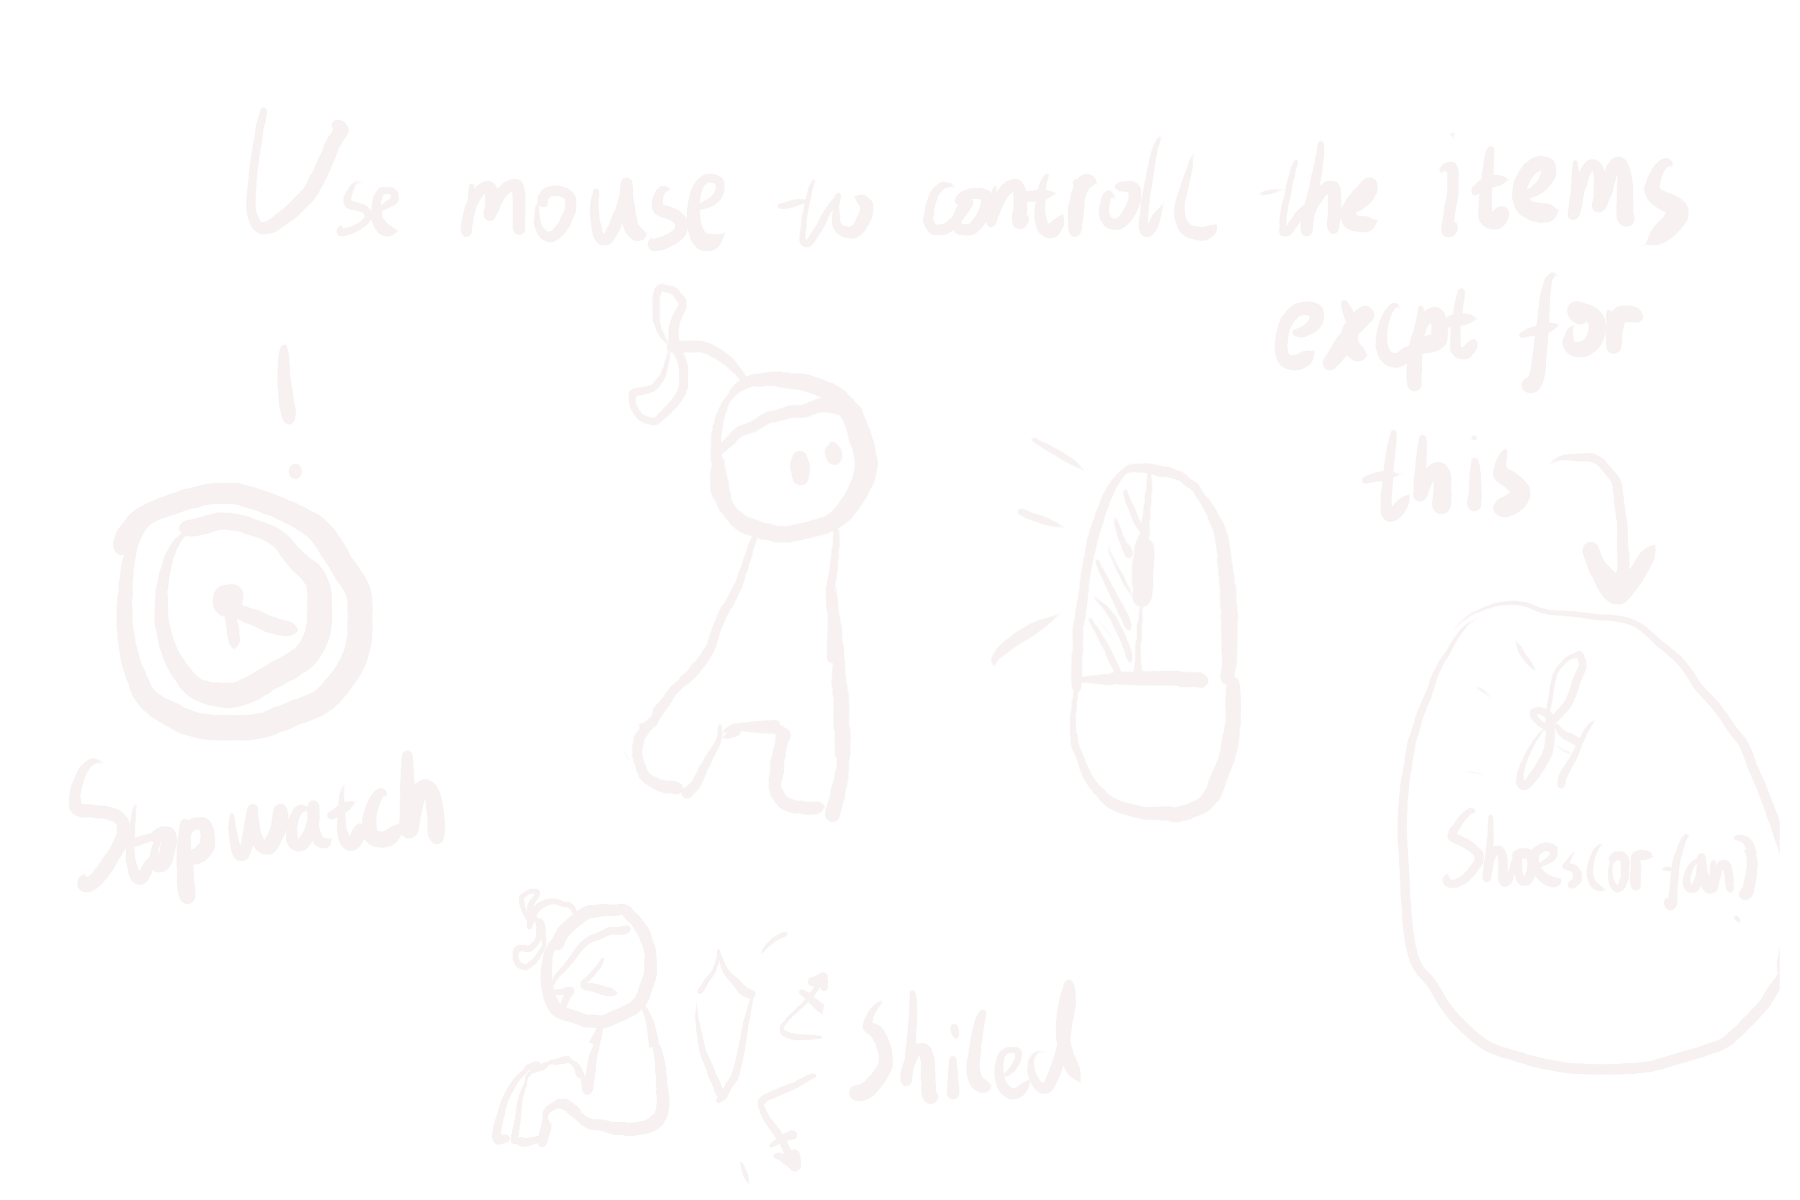 Use mouse to controll the items
excpt for
this
!
Stopwatch
Shoes(or fan)
Shiled